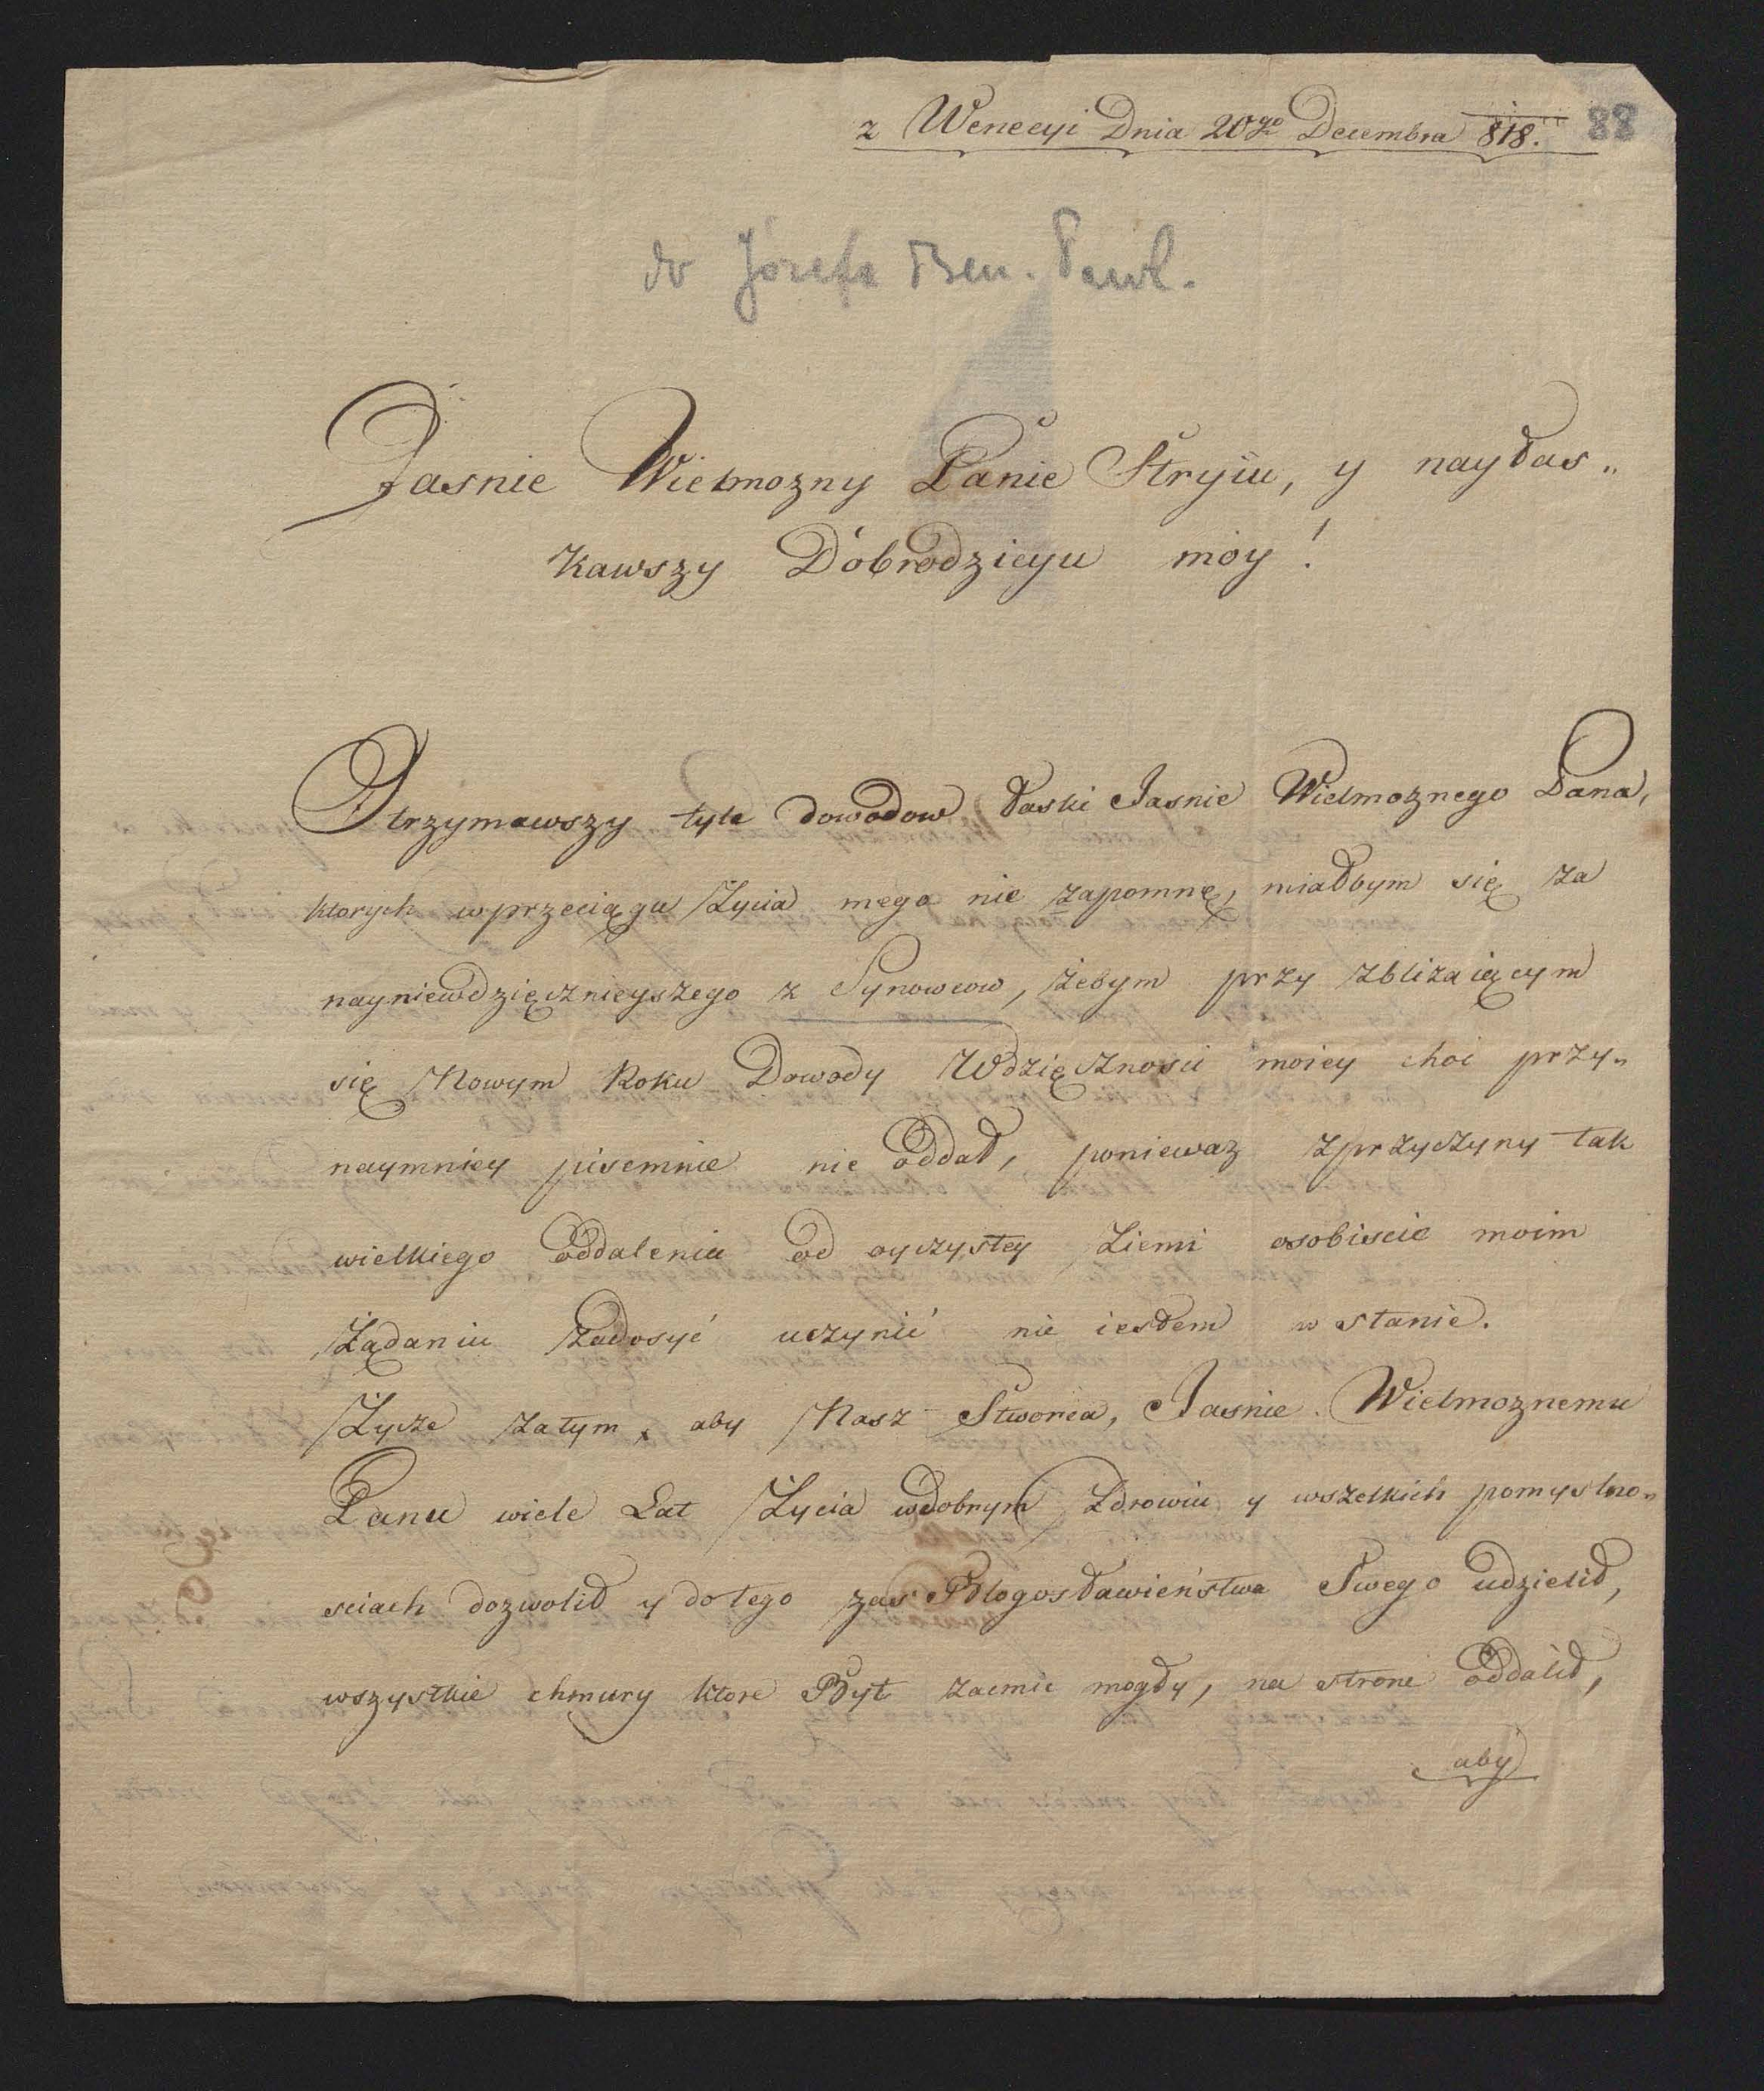 z Wenecyi Dnia 20go Decembra 818. 88
do Józefa Ben. Pawl.
Jasnie Wielmozny Panie Stryiu, y nayłas„
kawszy Dobrodzieyu móy!
Otrzymawszy tyle dowodow łaski Jasnie Wielmoznego Pana,
ktorych w przeciągu Zycia mego nie zapomnę, miałbym się za
nayniewdzięcznieyszego z Synowcow, żebym przy zbliżaiącym
się Nowym Roku Dowody Wdzięcznosci moiey choc przy„
naymniey pisemnie nie oddał, poniewaz zprzyczyny tak
wielkiego oddalenia od oyczystey Ziemi osobiscie moim
Żądaniu zadosyć uczynić nie iestem w stanie.
Życze zatym, aby Nasz Stworca, Jasnie Wielmoznemu
Panu wiele Lat Życia wdobrym Zdrowiu y wszelkich pomyslno„
sciach dozwolił y do tego zas Błogosławieństwa Swego udzielił,
wszystkie chmury ktore Byt zacmic mogły, na strone oddalił,
aby